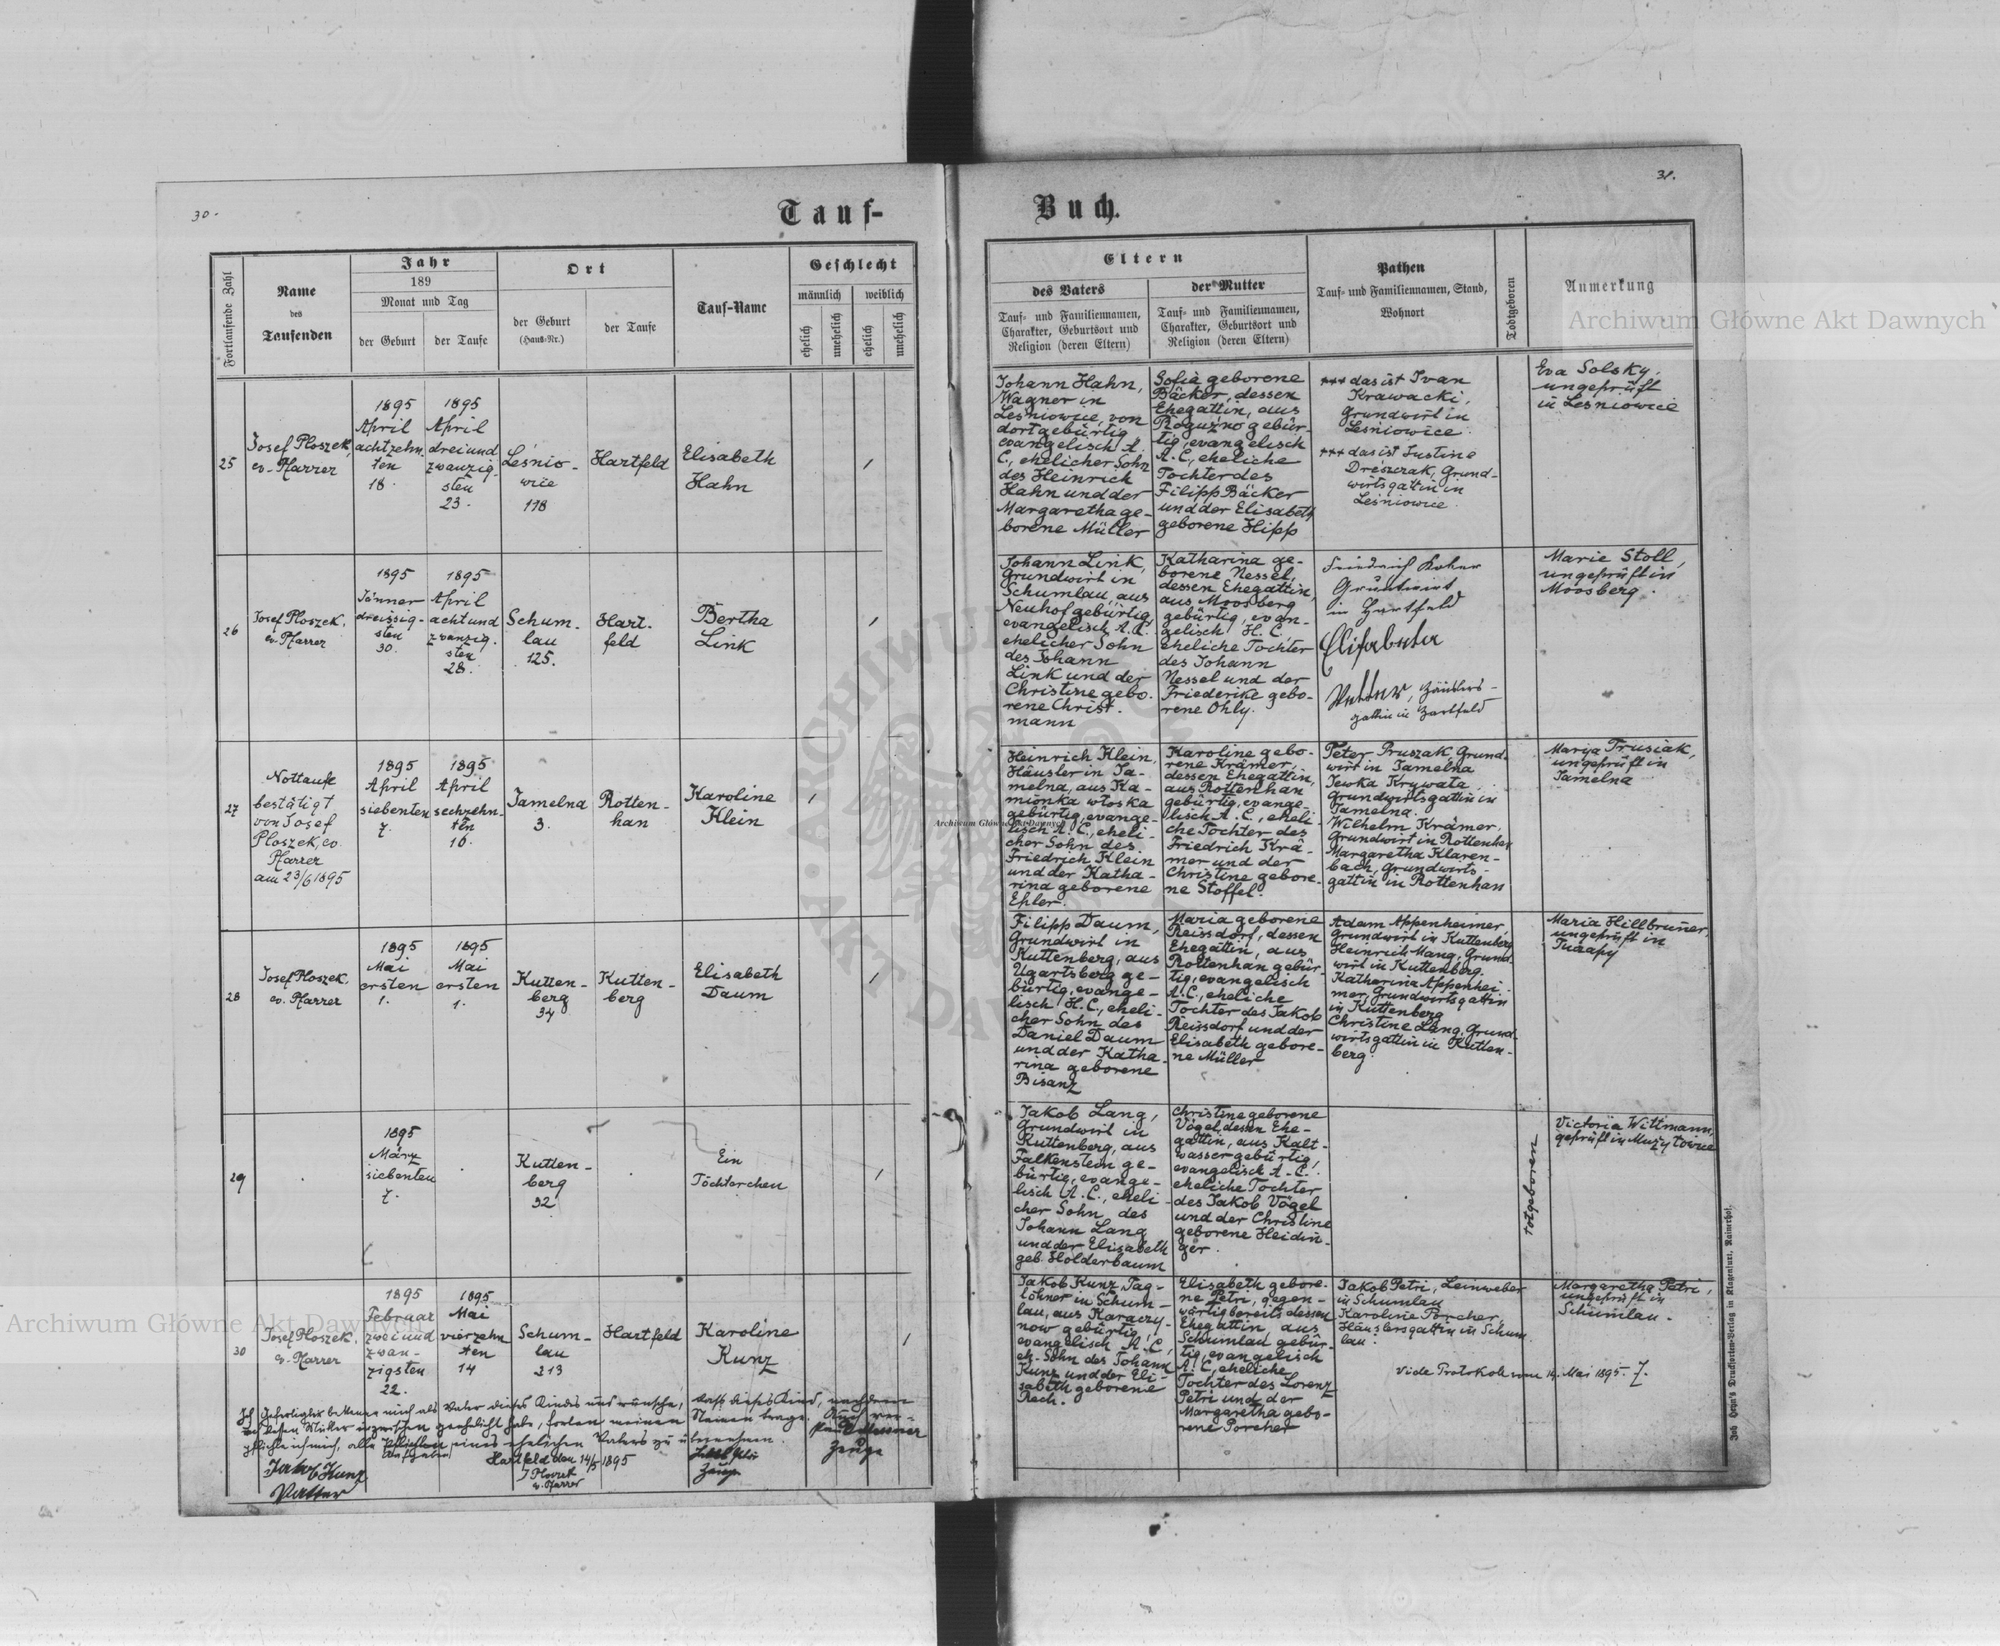 30.
31.
Tauf-
Buch.
Fortlaufende Zahl
Name
des
Taufenden
Jahr
189
Monat und Tag
der Geburt
der Taufe
Ort
der Geburt
(Haus-Nr.)
der Taufe
Tauf-Name
Geschlecht
männlich
weiblich
ehelich
unehelich
ehelich
unehelich
Eltern
des Vaters
Tauf- und Familiennamen,
Charakter, Geburtsort und
Religion (deren Eltern)
der Mutter
Tauf- und Familiennamen,
Charakter, Geburtsort und
Religion (deren Eltern)
Pathen
Tauf- und Familiennamen, Stand,
Wohnort
Todtgeboren
Anmerkung
Archiwum Główne Akt Dawnych
25
Josef Ploszek,
ev. Pfarrer
1895
April
achtzehn-
ten
18.
1895
April
dreiund
zwanzig-
sten
23.
Leśnio-
wice
118
Hartfeld
Elisabeth
Hahn
/
Johann Hahn,
Wagner in
Leśniowice, von
dort gebürtig
evangelisch A.
C., ehelicher Sohn
des Heinrich
Hahn und der
Margaretha ge-
borene Müller
Sofie geborene
Bäcker, dessen
Ehegattin, aus
Roguźno gebür-
tig, evangelisch
A. C., eheliche
Tochter des
Filipp Bäcker
und der Elisabeth
geborene Hipp
+++ das ist Ivan
Krawacki,
Grundwirt in
Leśniowice.
+++ das ist Justine
Drėszczak, Grund-
wirtsgattin in
Leśniowice.
Eva Solsky,
ungeprüft
in Leśniowice
26
Josef Ploszek,
ev. Pfarrer
1895
Jänner
dreissig-
sten
30.
1895
April
achtund
zwanzig-
sten
28.
Schum-
lau
125.
Hart-
feld
Bertha
Link
/
Johann Link,
Grundwirt in
Schumlau, aus
Neuhof gebürtig,
evangelisch A. C.
ehelicher Sohn
des Johann
Link und der
Christine gebo-
rene Christ-
mann
Katharina ge-
borene Nessel,
dessen Ehegattin,
aus Moosberg
gebürtig, evan-
gelisch H. C.
eheliche Tochter
des Johann
Nessel und der
Friederike gebo-
rene Ohly.
Friedrich
Grundwirt
in Hartfeld
Elisabeta
Häuslers-
gattin in Hartfeld
Marie Stoll,
ungeprüft in
Moosberg.
27
Nottaufe
bestätigt
von Josef
Ploszek, ev.
Pfarrer
am 23/6 1895
1895
April
siebenten
7.
1895
April
sechzehn-
ten
16.
Jamelna
3.
Rotten-
han
Karoline
Klein
/
Heinrich Klein,
Häusler in Ja-
melna, aus Ka-
mionka włoska
gebürtig, evange-
lisch A. C., eheli-
cher Sohn des
Friedrich Klein
und der Katha-
rina geborene
Ehler.
Karoline gebo-
rene Krämer,
dessen Ehegattin,
aus Rottenhan
gebürtig, evange-
lisch A. C., eheli-
che Tochter des
Friedrich Krä-
mer und der
Christine gebore-
ne Stoffel.
Peter Pruszak, Grund-
wirt in Jamelna
Jewka Krywata,
Grundwirtsgattin in
Jamelna.
Wilhelm Krämer,
Grundwirt in Rottenhan
Margaretha Klaren-
bach, Grundwirts-
gattin in Rottenhan
Marya Trusiak,
ungeprüft in
Jamelna
Archiwum Główne Akt Dawnych
28
Josef Ploszek,
ev. Pfarrer
1895
Mai
ersten
1.
1895
Mai
ersten
1.
Kutten-
berg
34
Kutten-
berg
Elisabeth
Daum
/
Filipp Daum,
Grundwirt in
Kuttenberg, aus
Ugartsberg ge-
bürtig, evange-
lisch H. C., eheli-
cher Sohn des
Daniel Daum
und der Katha-
rina geborene
Bisanz
Maria geborene
Reissdorf, dessen
Ehegattin, aus
Rottenhan gebür-
tig, evangelisch
A. C., eheliche
Tochter des Jakob
Reissdorf und der
Elisabeth gebore-
ne Müller
Adam Appenheimer
Grundwirt in Kuttenberg
Heinrich Mang, Grund-
wirt in Kuttenberg.
Katharina Appenhei-
mer, Grundwirtsgattin
in Kuttenberg
Christine Lang, Grund-
wirtsgattin in Kutten-
berg.
Maria Hillbruner
ungeprüft in
29
1895
März
siebenten
7.
Kutten-
berg
32
Ein
Töchterchen
/
Jakob Lang,
Grundwirt in
Kuttenberg, aus
Falkenstein ge-
bürtig, evange-
lisch A. C., eheli-
cher Sohn des
Johann Lang
und der Elisabeth
geb. Holderbaum
Christine geborene
Vögel, dessen Ehe-
gattin, aus Kalt-
wasser gebürtig,
evangelisch A. C.
eheliche Tochter
des Jakob Vögel
und der Christine
geborene Heidin-
ger.
totgeboren
Victoria Wittmann,
geprüft in
30
Josef Ploszek,
ev. Pfarrer
1895
Februar
zweiund
zwan-
zigsten
22.
1895
Mai
vierzehn
ten
14
Schum-
lau
213
Hartfeld
Karoline
Kunz
/
Jakob Kunz, Tag-
löhner in Schum-
lau, aus Karaczy-
now gebürtig,
evangelisch A. C.,
eh. Sohn des Johann
Kunz und der Eli-
sabeth geborene
Rech.
Elisabeth gebore-
ne Petri, gegen-
wärtig bereits dessen
Ehegattin aus
Schumlau gebür-
tig, evangelisch
A. C., eheliche
Tochter des Lorenz
Petri und der
Margaretha gebo-
rene Porcher
Jakob Petri, Leinweber
in Schumlau
Karoline Porcher
Häuslersgattin in Schum-
lau.
Vide Protokoll vom 14. Mai 1895. 7.
Margaretha Petri,
ungeprüft in
Schumlau.
Archiwum Główne Akt Dawnych
Ich Gefertigter bekenne mich als Vater dieses Kindes und wünsche, dass dieses Kind, nachdem
ich dessen Mutter inzwischen geehelicht habe, fortan meinen Namen trage. Auch ver-
pflichte ich mich, alle Pflichten eines ehelichen Vaters zu übernehmen.
Jakob Kunz
Vatter
Hartfeld den 14/5 1895
J Ploszek
ev. Pfarrer
Zeuge
Zeuge
Joh Heyn's Drucksorten-Verlag in Klagenfurt, Rainerhof.